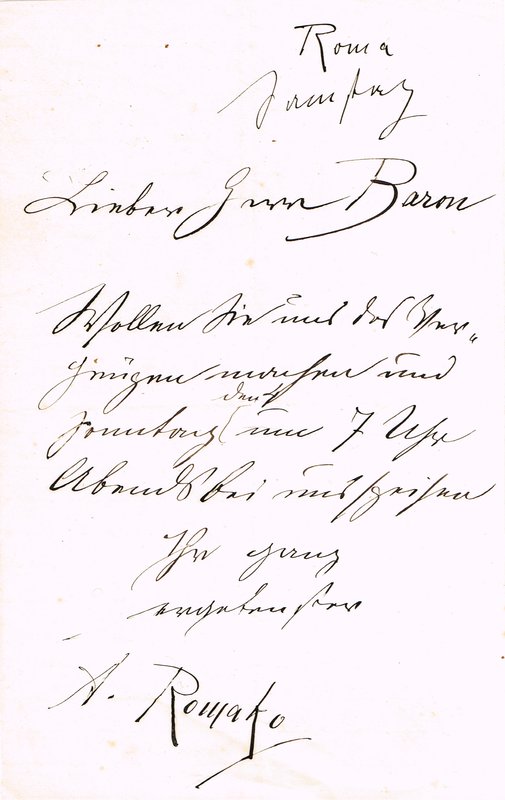 Roma
Samstag
Lieber Herr Baron
Wollen Sie uns das Ver„
gnügen machen und
Sonntag den 4 um 7 Uhr
Abends bei uns speisen
Ihr ganz
ergebenster
A. Romako